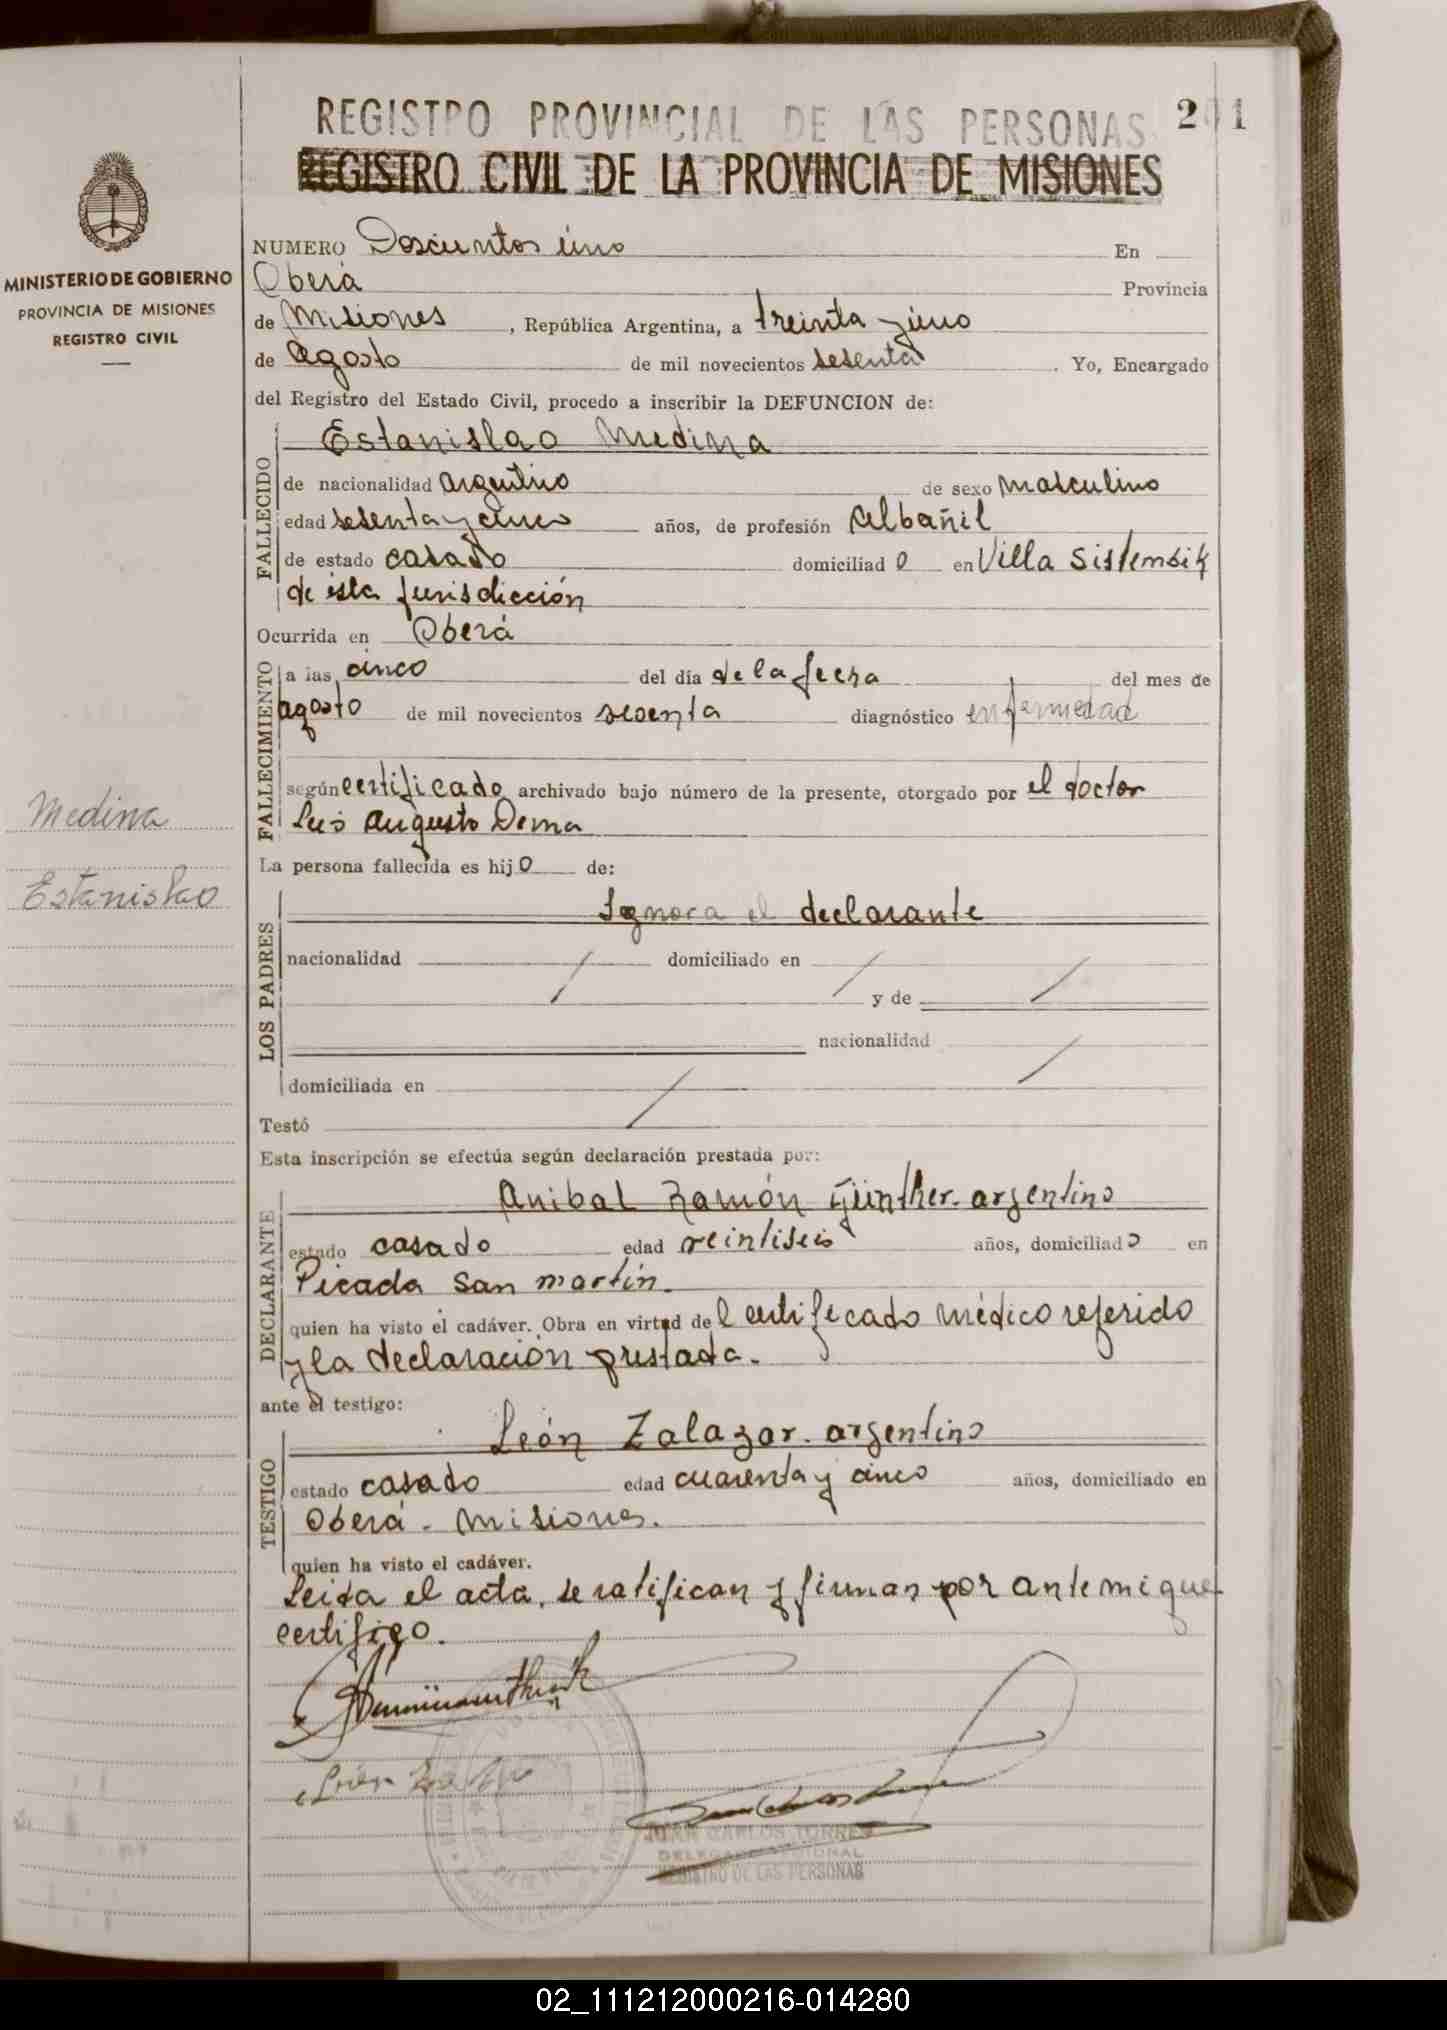 REGISTRO PROVINCIAL DE LAS PERSONAS
201
REGISTRO CIVIL DE LA PROVINCIA DE MISIONES
MINISTERIO DE GOBIERNO
PROVINCIA DE MISIONES
REGISTRO CIVIL
NUMERO Doscientos úno En
Oberá Provincia
de Misiones, República Argentina, a treinta y uno
de Agosto de mil novecientos sesenta. Yo, Encargado
del Registro del Estado Civil, procedo a inscribir la DEFUNCION de:
FALLECIDO
Estanislao Medina
de nacionalidad argentino de sexo masculino
edad sesenta y cinco años, de profesión Albañil
de estado casado domiciliado en Villa
de esta Jurisdicción
Ocurrida en Oberá
FALLECIMIENTO
a las cinco del día de la fecha del mes de
agosto de mil novecientos sesenta diagnóstico enfermedad
según certificado archivado bajo número de la presente, otorgado por el doctor
Luis Augusto Derna
La persona fallecida es hijo de:
LOS PADRES
Ignora el declarante
nacionalidad domiciliado en
y de
nacionalidad
domiciliada en
Testó
Esta inscripción se efectúa según declaración prestada por:
DECLARANTE
Anibal Ramón Günther. argentino
estado casado edad veintiseis años, domiciliado en
Picada San Martín.
quien ha visto el cadáver. Obra en virtud del certificado médico referido
y la declaración prestada.
ante el testigo:
TESTIGO
León Zalazar. argentino
estado casado edad cuarenta y cinco años, domiciliado en
Oberá - Misiones.
quien ha visto el cadáver.
Leida el acta, se ratifican y firman por ante mi que
certifico.
JUAN CARLOS TORRES
DELEGADO REGIONAL
REGISTRO DE LAS PERSONAS
Medina
Estanislao
02_111212000216-014280